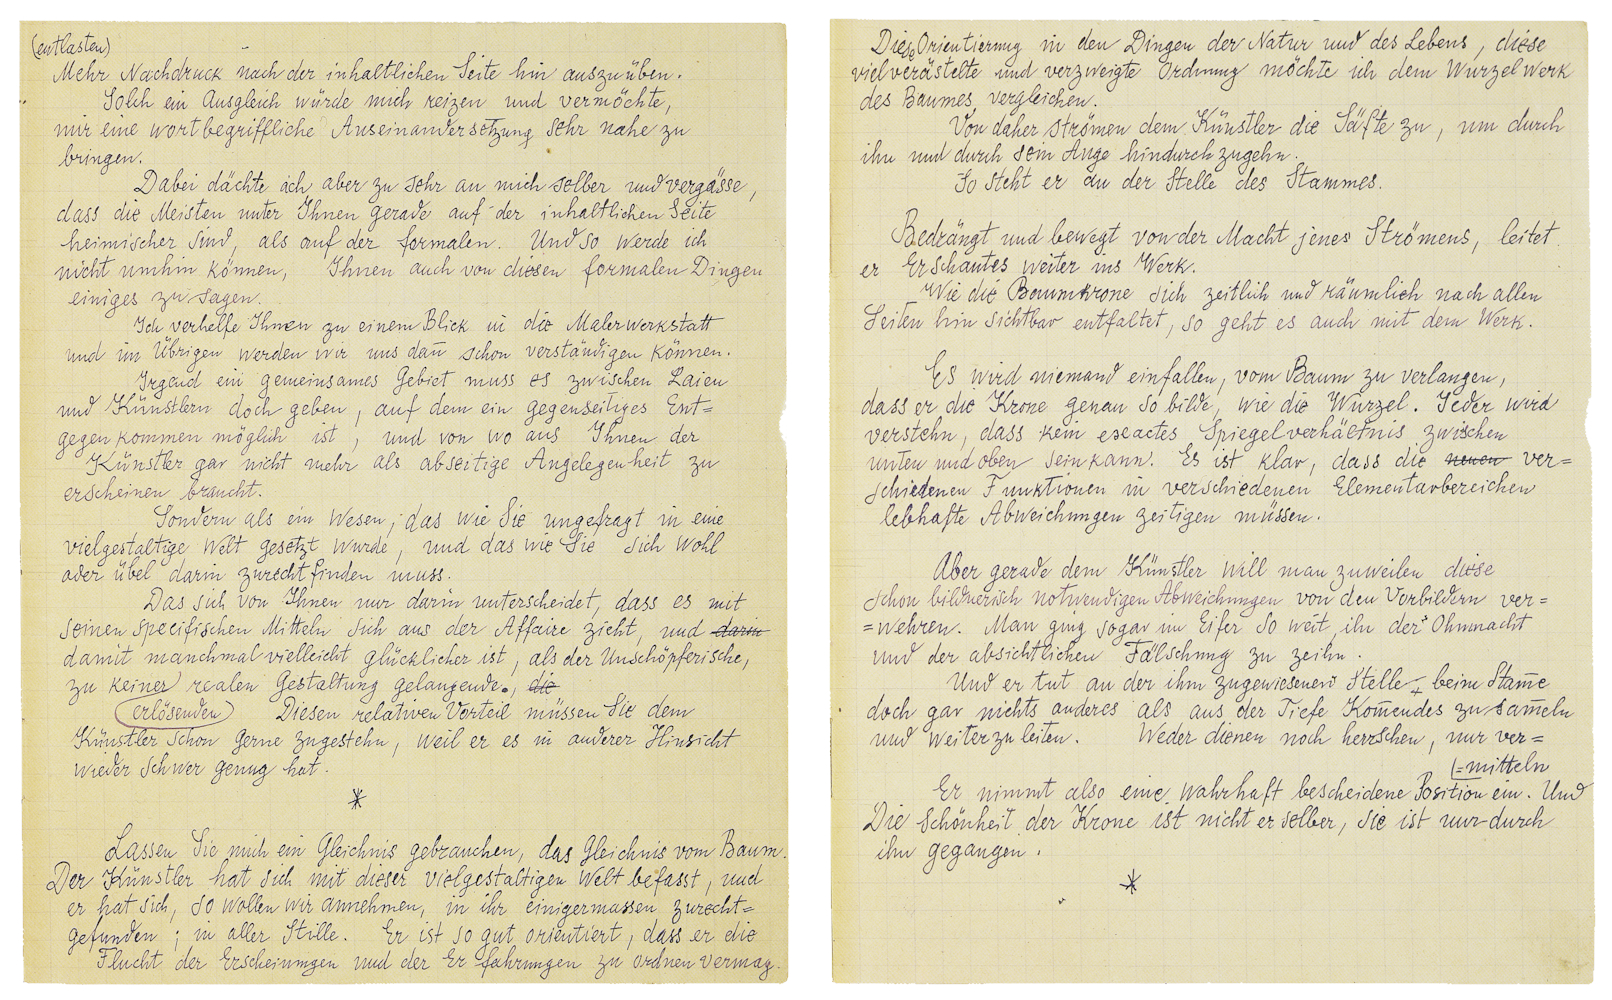 (entlasten)
Mehr Nachdruck nach der inhaltlichen Seite hin auszuüben.
Solch ein Ausgleich würde mich reizen und vermöchte,
mir eine wortbegriffliche Auseinandersetzung sehr nahe zu
bringen.
Dabei dächte ich aber zu sehr an mich selber und vergässe,
dass die Meisten unter Ihnen gerade auf der inhaltlichen Seite
heimischer sind, als auf der formalen. Und so werde ich
nicht umhin können, Ihnen auch von diesen formalen Dingen
einiges zu sagen.
Ich verhelfe Ihnen zu einem Blick in die Malerwerkstatt
und im Übrigen werden wir uns dañ schon verständigen können.
Irgend ein gemeinsames Gebiet muss es zwischen Laien
und Künstlern doch geben, auf dem ein gegenseitiges Ent=
gegenkommen möglich ist, und von wo aus Ihnen der
Künstler gar nicht mehr als abseitige Angelegenheit zu
erscheinen braucht.
Sondern als ein Wesen, das wie Sie ungefragt in eine
vielgestaltige Welt gesetzt wurde, und das wie Sie sich wohl
oder übel darin zurechtfinden muss.
Das sich von Ihnen nur darin unterscheidet, dass es mit
seinen specifischen Mitteln sich aus der Affaire zieht, und darin
damit manchmal vielleicht glücklicher ist, als der Unschöpferische,
zu keiner realen Gestaltung gelangende., die
(erlösenden) Diesen relativen Vorteil müssen Sie dem
Künstler schon gerne zugestehn, weil er es in anderer Hinsicht
wieder schwer genug hat.
*
Lassen Sie mich ein Gleichnis gebrauchen, das Gleichnis vom Baum.
Der Künstler hat sich mit dieser vielgestaltigen Welt befasst, und
er hat sich, so wollen wir annehmen, in ihr einigermassen zurecht=
gefunden; in aller Stille. Er ist so gut orientiert, dass er die
Flucht der Erscheinungen und der Erfahrungen zu ordnen vermag.
Diese Orientierung in den Dingen der Natur und des Lebens, diese
vielverästelte und verzweigte Ordnung möchte ich dem Wurzelwerk
des Baumes vergleichen.
Von daher strömen dem Künstler die Säfte zu, um durch
ihn und durch sein Auge hindurchzugehn.
So steht er an der Stelle des Stammes.
Bedrängt und bewegt von der Macht jenes Strömens, leitet
er Erschautes weiter ins Werk.
Wie die Baumkrone sich zeitlich und räumlich nach allen
Seiten hin sichtbar entfaltet, so geht es auch mit dem Werk.
Es wird niemand einfallen, vom Baum zu verlangen,
dass er die Krone genau so bilde, wie die Wurzel. Jeder wird
verstehn, dass kein exactes Spiegelverhältnis zwischen
unten und oben sein kann. Es ist klar, dass die neuen ver=
schiedenen Funktionen in verschiedenen Elementarbereichen
lebhafte Abweichungen zeitigen müssen.
Aber gerade dem Künstler will man zuweilen diese
schon bildnerisch notwendigen Abweichungen von den Vorbildern ver=
=wehren. Man ging sogar im Eifer so weit, ihn der Ohnmacht
und der absichtlichen Fälschung zu zeihn.
Und er tut an der ihm zugewiesenen Stelle beim Stam̄e
doch gar nichts anderes als aus der Tiefe Kom̄endes zu sam̄eln
und weiterzuleiten. Weder dienen noch herrschen, nur ver=
(=mitteln
Er nimmt also eine wahrhaft bescheidene Position ein. Und
Die Schönheit der Krone ist nicht er selber, sie ist nur durch
ihn gegangen.
*